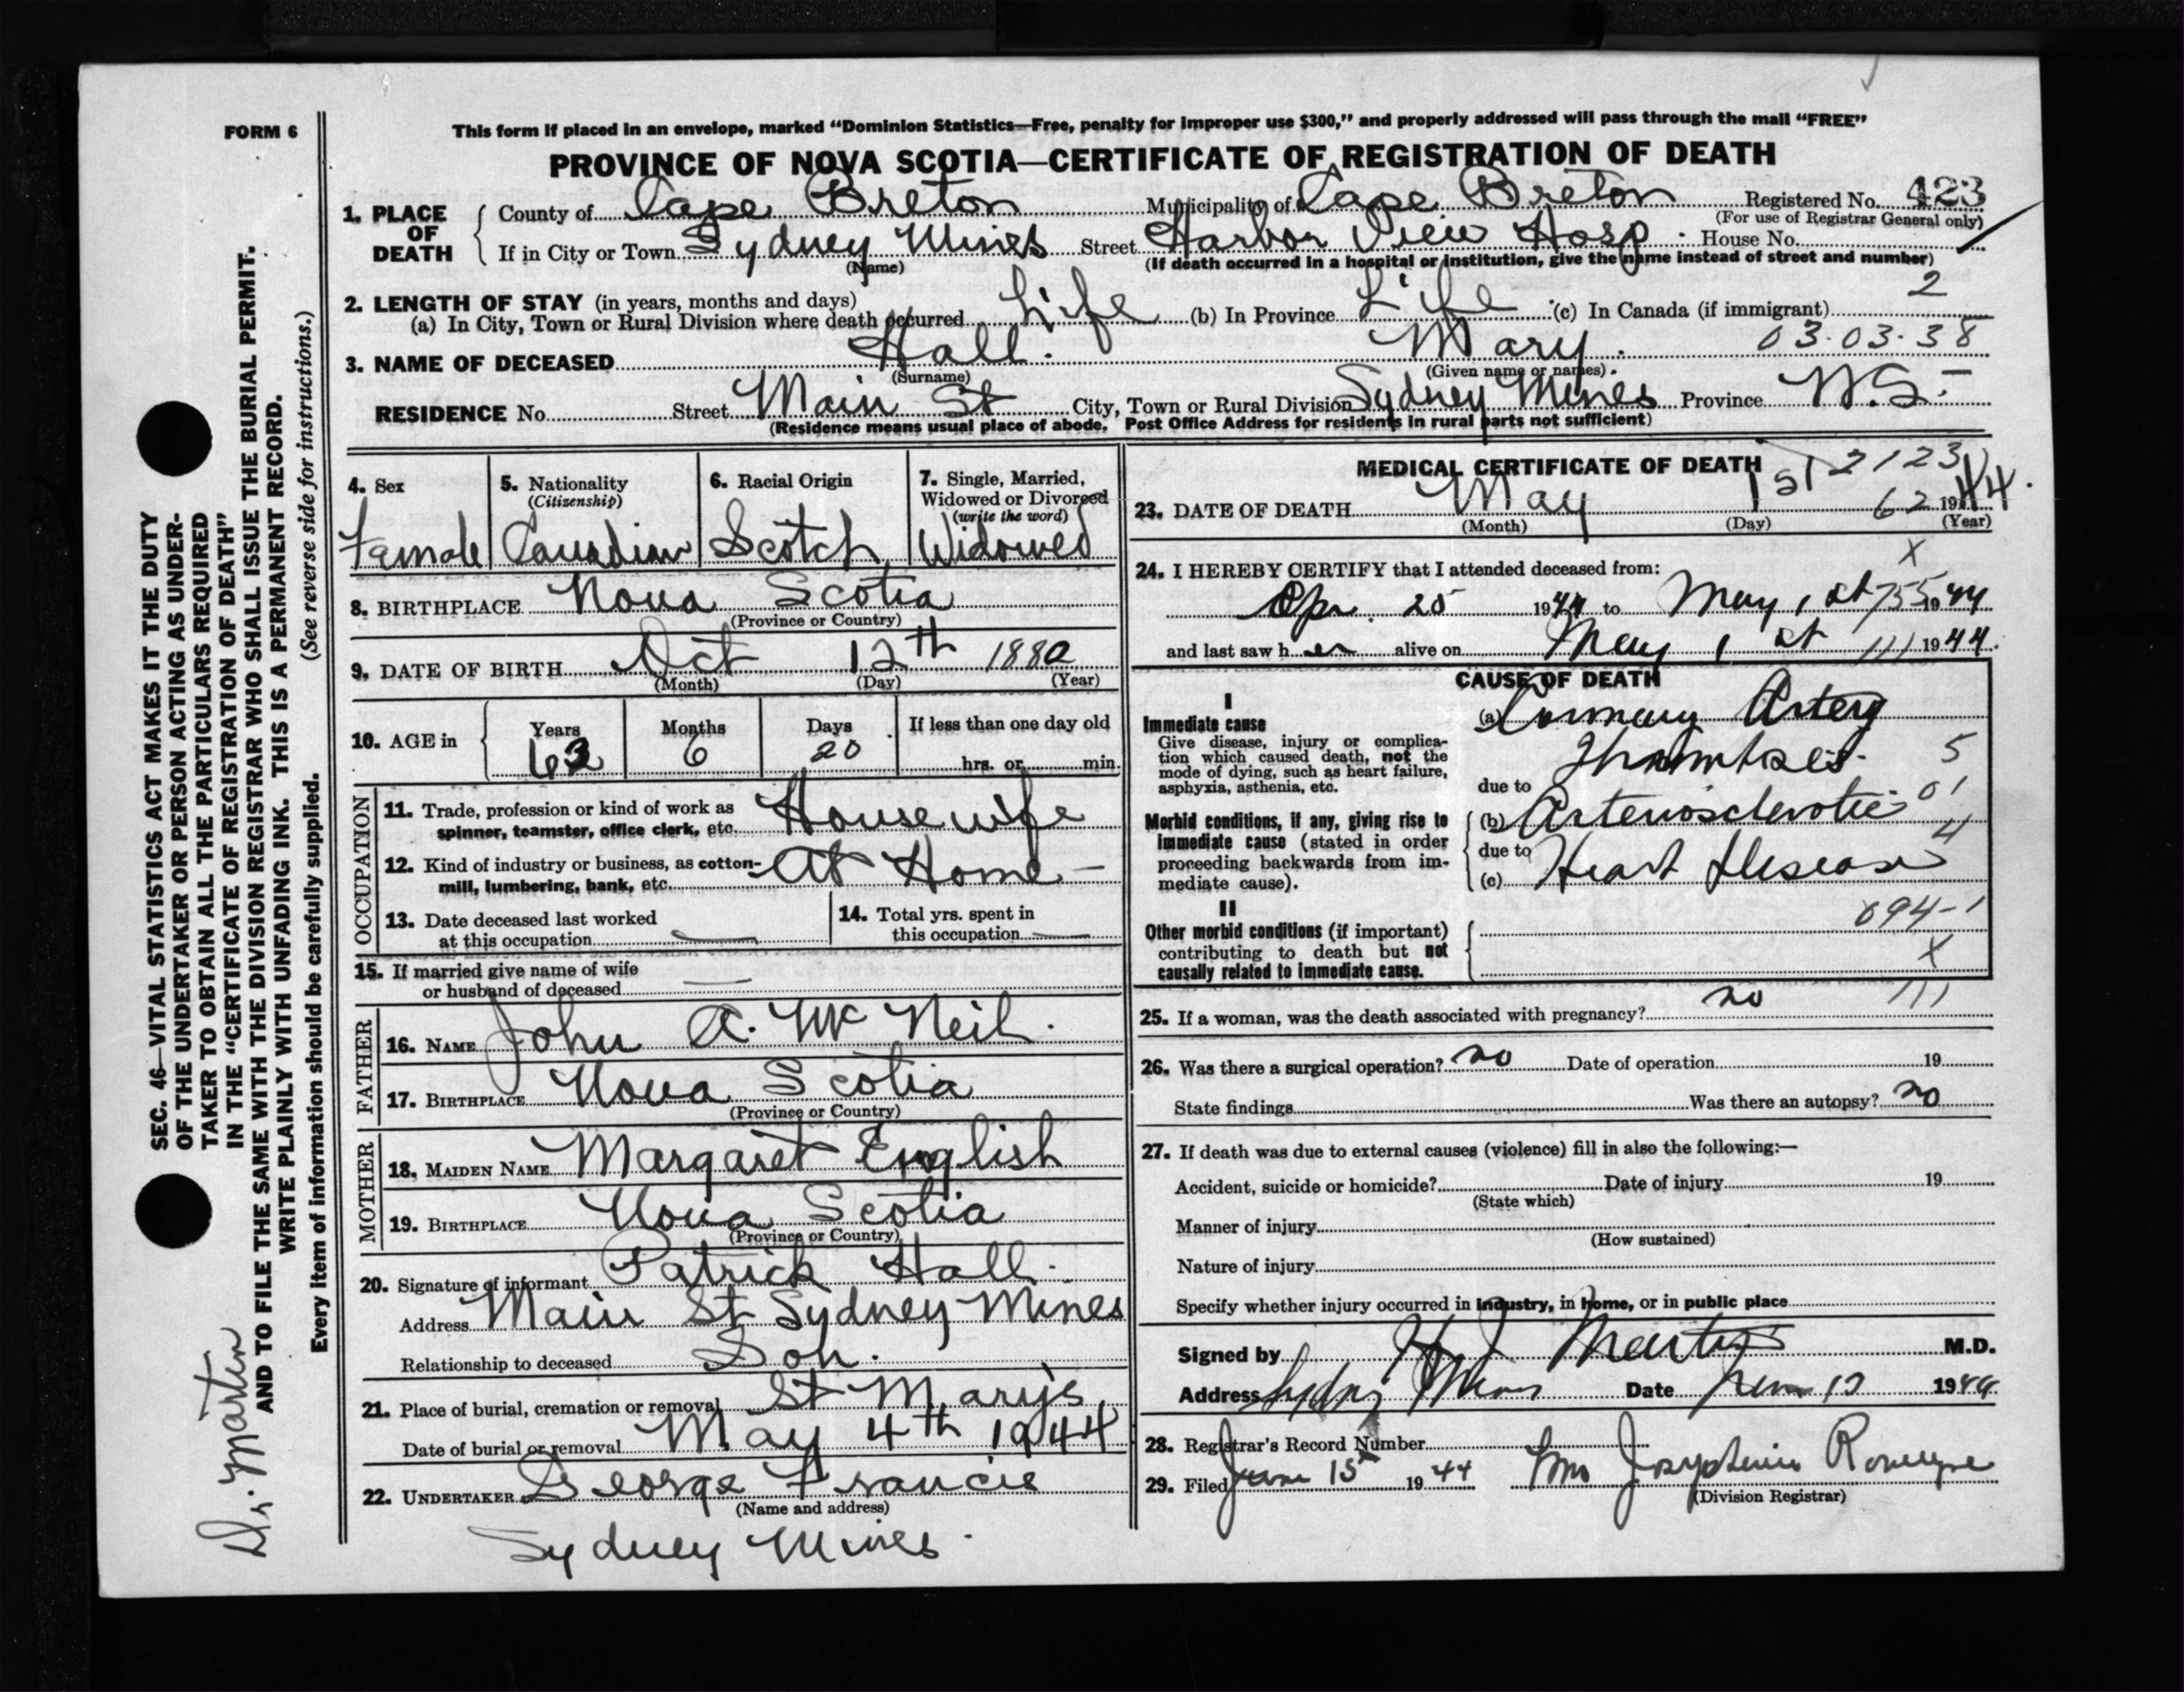 FORM 6
This form if placed in an envelope, marked "Dominion Statistics—Free, penalty for improper use $300," and properly addressed will pass through the mail "FREE"
PROVINCE OF NOVA SCOTIA—CERTIFICATE OF REGISTRATION OF DEATH
1. PLACE OF DEATH County of Cape Breton Municipality of Cape Breton Registered No. 423
(For use of Registrar General only)
If in City or Town Sydney Mines Street Harbor View Hosp. House No.
(Name) (If death occurred in a hospital or institution, give the name instead of street and number)
2. LENGTH OF STAY (in years, months and days) 2
(a) In City, Town or Rural Division where death occurred Life (b) In Province Life (c) In Canada (if immigrant)
3. NAME OF DECEASED Hall. Mary. 03.03.38
(Surname) (Given name or names)
RESIDENCE No. Street Main St City, Town or Rural Division Sydney Mines Province N.S.-
(Residence means usual place of abode. Post Office Address for residents in rural parts not sufficient)
4. Sex 5. Nationality (Citizenship) 6. Racial Origin 7. Single, Married, Widowed or Divorced (write the word)
Female Canadian Scotch Widowed
8. BIRTHPLACE Nova Scotia
(Province or Country)
9. DATE OF BIRTH Oct 12th 1880
(Month) (Day) (Year)
10. AGE in Years Months Days If less than one day old
63 6 20 hrs. or min.
OCCUPATION
11. Trade, profession or kind of work as spinner, teamster, office clerk, etc. Housewife
12. Kind of industry or business, as cotton-mill, lumbering, bank, etc. At Home —
13. Date deceased last worked at this occupation — 14. Total yrs. spent in this occupation —
15. If married give name of wife or husband of deceased —
FATHER
16. NAME John A. McNeil.
17. BIRTHPLACE Nova Scotia
(Province or Country)
MOTHER
18. MAIDEN NAME Margaret English
19. BIRTHPLACE Nova Scotia
(Province or Country)
20. Signature of informant Patrick Hall.
Address Main St Sydney Mines
Relationship to deceased Son.
21. Place of burial, cremation or removal St Mary's
Date of burial or removal May 4th 1944
22. UNDERTAKER George Francis
(Name and address)
Sydney Mines.
MEDICAL CERTIFICATE OF DEATH 2123
23. DATE OF DEATH May 1st 62 1944.
(Month) (Day) (Year)
X
24. I HEREBY CERTIFY that I attended deceased from:
Apr. 25 1944 to May 1st 755 1944
and last saw her alive on May 1st 111 1944.
CAUSE OF DEATH
I
Immediate cause
Give disease, injury or complication which caused death, not the mode of dying, such as heart failure, asphyxia, asthenia, etc.
(a) Coronary Artery
Thrombosis. 5
due to
Morbid conditions, if any, giving rise to immediate cause (stated in order proceeding backwards from immediate cause).
(b) Arteriosclerotic 01
due to 4
(c) Heart Disease
II
Other morbid conditions (if important) contributing to death but not causally related to immediate cause.
094-1
X
25. If a woman, was the death associated with pregnancy? no 111
26. Was there a surgical operation? no Date of operation 19
State findings Was there an autopsy? no
27. If death was due to external causes (violence) fill in also the following:—
Accident, suicide or homicide? Date of injury 19
(State which)
Manner of injury
(How sustained)
Nature of injury
Specify whether injury occurred in industry, in home, or in public place
Signed by H J Martin M.D.
Address Sydney Mines Date 1944
28. Registrar's Record Number
29. Filed June 15th 1944 Mrs Josephine
(Division Registrar)
SEC. 46—VITAL STATISTICS ACT MAKES IT THE DUTY
OF THE UNDERTAKER OR PERSON ACTING AS UNDER-
TAKER TO OBTAIN ALL THE PARTICULARS REQUIRED
IN THE "CERTIFICATE OF REGISTRATION OF DEATH"
AND TO FILE THE SAME WITH THE DIVISION REGISTRAR WHO SHALL ISSUE THE BURIAL PERMIT.
WRITE PLAINLY WITH UNFADING INK. THIS IS A PERMANENT RECORD.
(See reverse side for instructions.)
Every item of information should be carefully supplied.
Dr. Martin